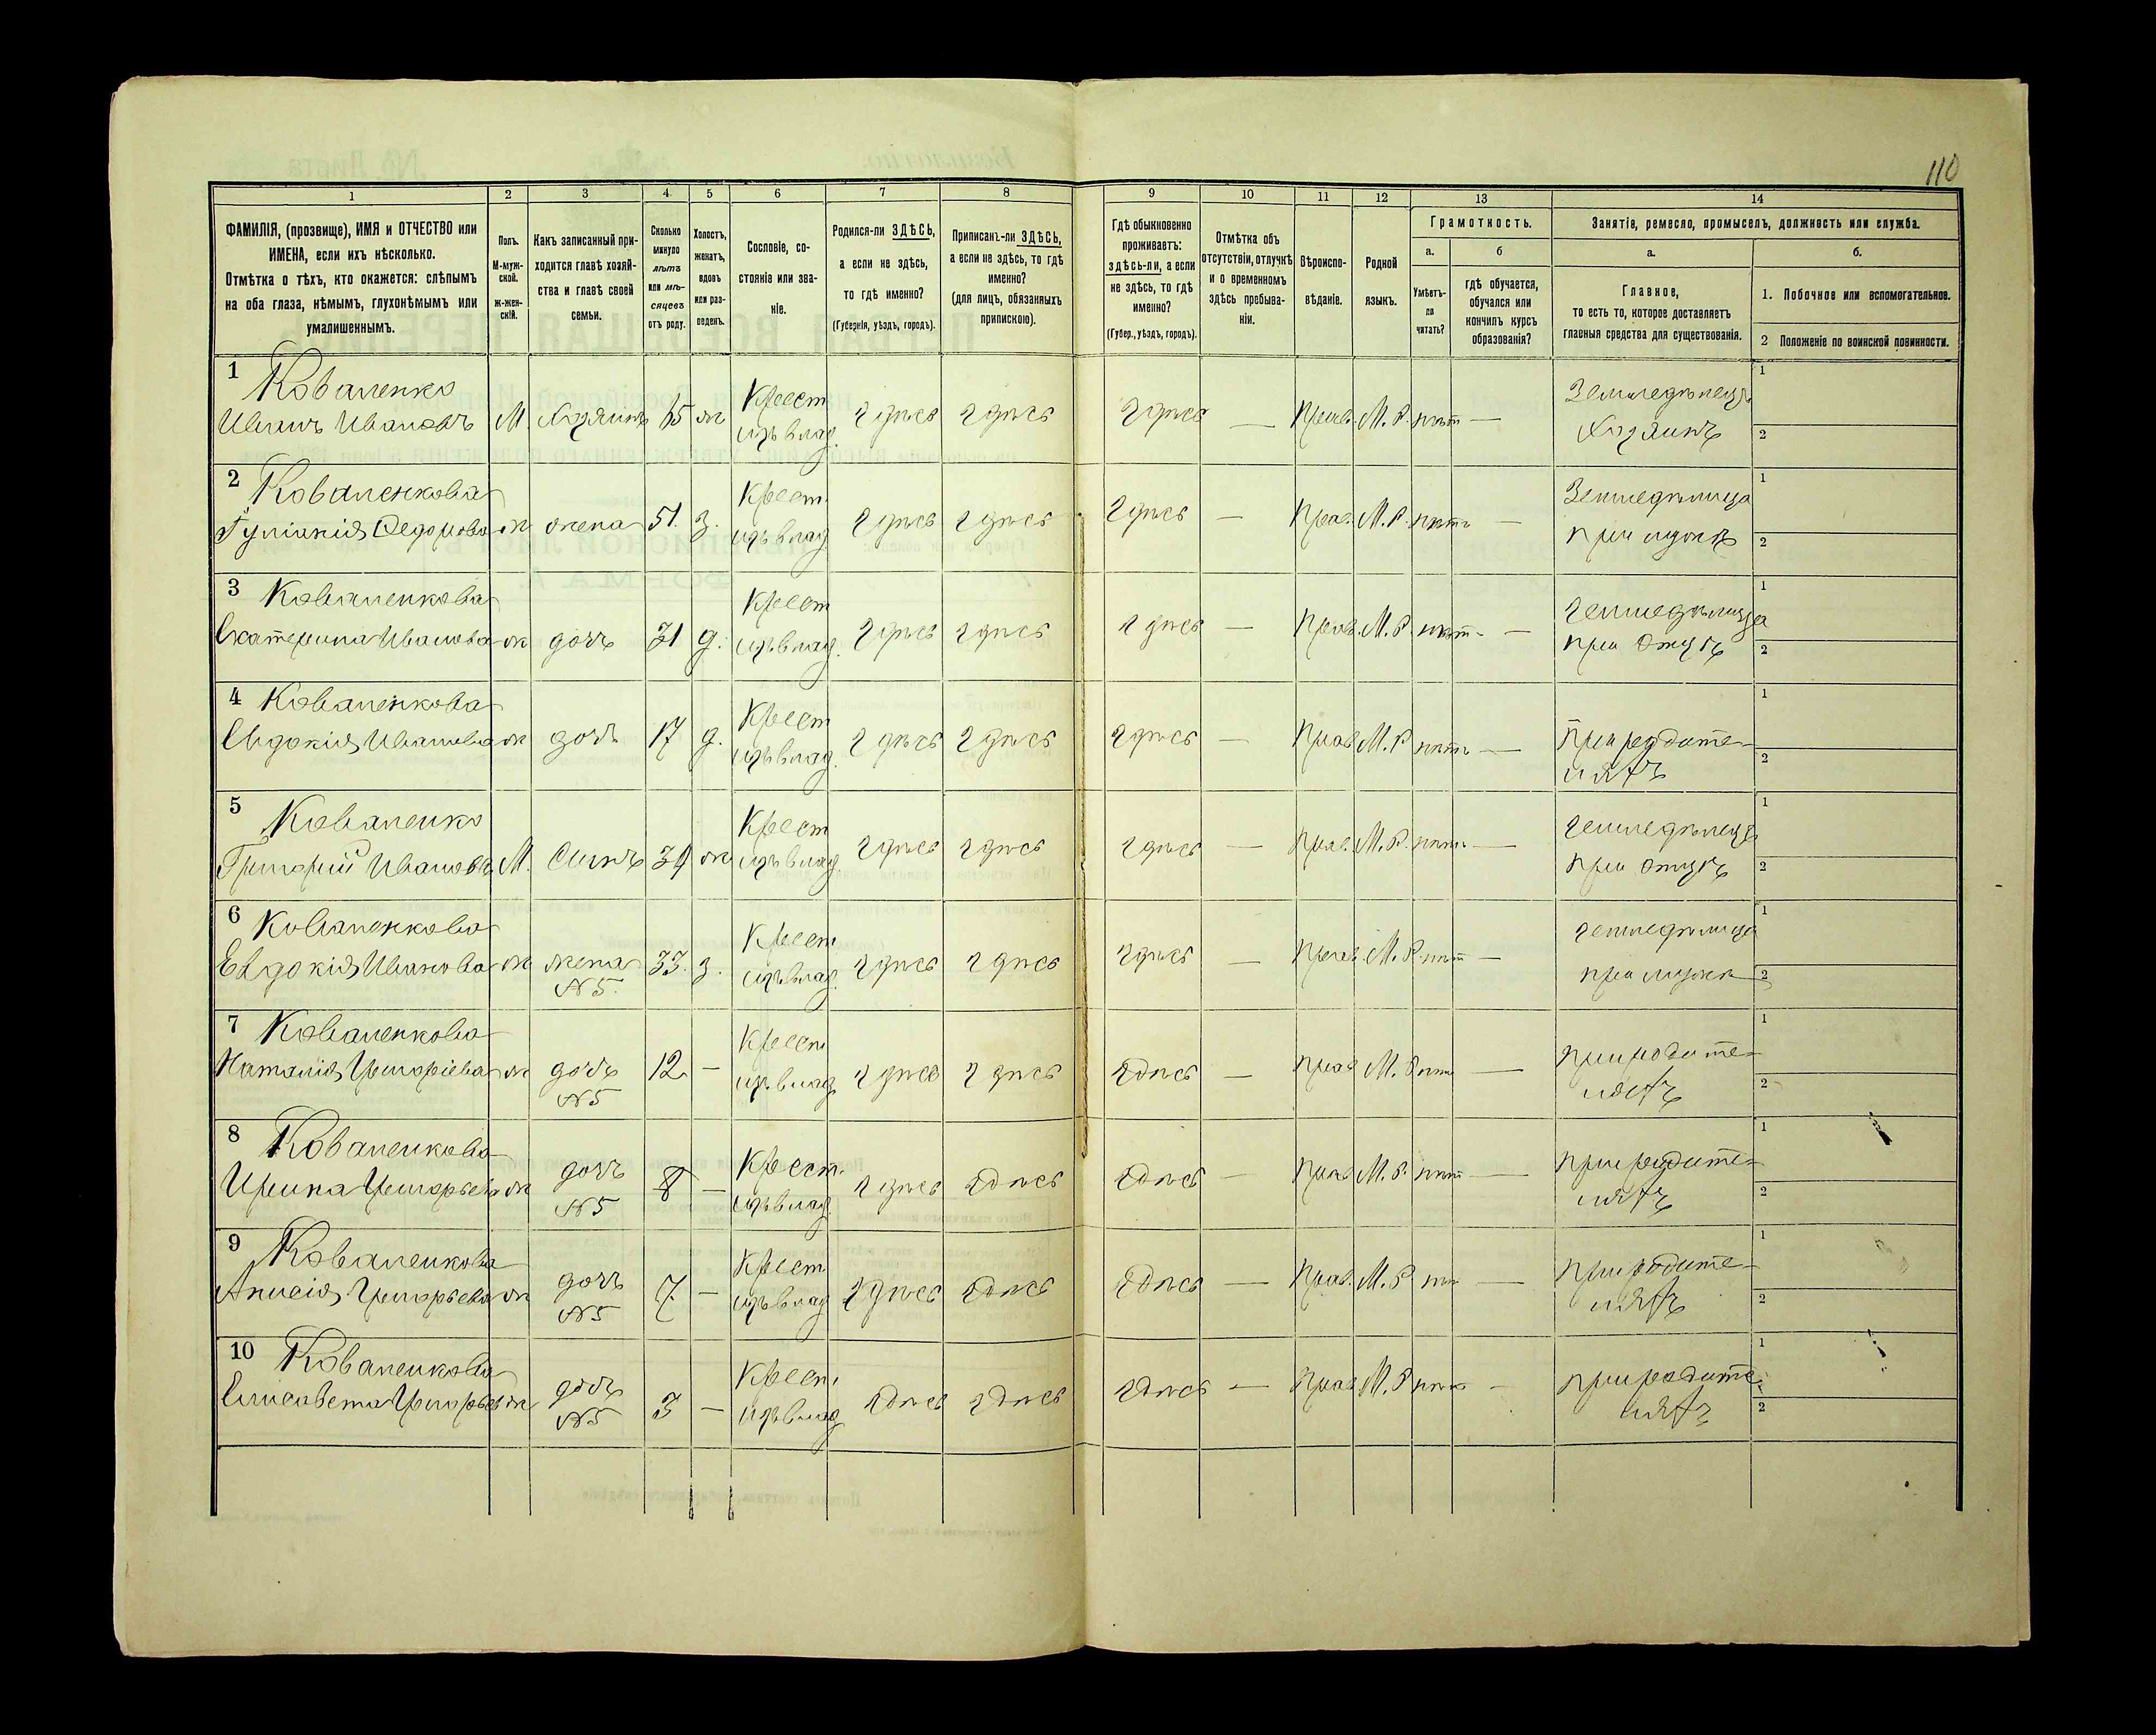 110
1
2
3
4
5
6
7
8
9
10
11
12
13
14
ФАМИЛІЯ, (прозвище), ИМЯ и ОТЧЕСТВО или
ИМЕНА, если ихъ нѣсколько.
Отмѣтка о тѣхъ, кто окажется: слѣпымъ
на оба глаза, нѣмымъ, глухонѣмымъ или
умалишеннымъ.
Полъ.
М-муж-
ской.
ж-жен-
скій.
Какъ записанный при-
ходится главѣ хозяй-
ства и главѣ своей
семьи.
Сколько
минуло
лѣтъ
или мѣ-
сяцевъ
отъ роду.
Холостъ,
женатъ,
вдовъ
или раз-
веденъ.
Сословіе, со-
стояніе или зва-
ніе.
Родился-ли ЗДѢСЬ,
а если не здѣсь,
то гдѣ именно?
(Губернія, уѣздъ, городъ).
Приписанъ-ли ЗДѢСЬ,
а если не здѣсь, то гдѣ
именно?
(для лицъ, обязанныхъ
припискою).
Гдѣ обыкновенно
проживаетъ:
здѣсь-ли, а если
не здѣсь, то гдѣ
именно?
(Губер., уѣздъ, городъ).
Отмѣтка объ
отсутствіи, отлучкѣ
и о временномъ
здѣсь пребыва-
ніи.
Вѣроиспо-
вѣданіе.
Родной
языкъ.
Грамотность.
а.
Умѣетъ-
ли
читать?
б
гдѣ обучается,
обучался или
кончилъ курсъ
образованія?
Занятіе, ремесло, промыселъ, должность или служба.
а.
Главное,
то есть то, которое доставляетъ
главныя средства для существованія.
б.
1. Побочное или вспомогательное.
2 Положеніе по воинской повинности.
1 Коваленко Крест Земледѣлецъ 1
Иванъ Ивановъ М. Хозяинъ 65 ж изъ влад. здѣсь здѣсь здѣсь — Прав. М.Р. нѣт — Хозяинъ 2
2 Коваленкова Крест. Земледѣлица 1
Федорова ж жена 51. з. изъ влад. здѣсь здѣсь здѣсь — Прав. М.Р. нѣтъ — при мужѣ 2
3 Коваленкова Крест земледѣлица 1
Екатерина Иванова ж дочь 31 д. изъ влад. здѣсь здѣсь здѣсь — Прав. М.Р. нѣт — при отцѣ 2
4 Коваленкова Крест При родите- 1
Евдокія Иванова ж дочь 17 д. изъ влад. здѣсь здѣсь здѣсь — Прав М.Р нѣтъ — ляхъ 2
5 Коваленко Крест земледѣлецъ 1
Григорий Ивановъ М. Сынъ ж изъ влад здѣсь здѣсь здѣсь — Прав. М.Р. нѣтъ — при отцѣ 2
6 Коваленкова Крест земледѣлица 1
Евдокія Иванова ж жена 33. з. изъ влад. здѣсь здѣсь здѣсь — Прав М.Р. нѣт — при мужѣ 2
N 5.
7 Коваленкова Крест при родите- 1
Наталія Григоріева ж дочь 12 — изъ влад здѣсь здѣсь здѣсь — Прав М. Р нѣт — ляхъ 2
N 5
8 Коваленкова дочь Крест. при родите- 1
Ирина Григорьева ж N 5 8 — изъ влад здѣсь здѣсь здѣсь — Прав М.Р. нѣт — ляхъ 2
9 Коваленкова дочь Крест при родите- 1
Григорьева ж N 5 7 — изъ влад здѣсь здѣсь здѣсь — Прав. М.Р — ляхъ 2
10 Коваленкова дочь Крест при родите- 1
Елисавета Григорьев ж N 5 3 — изъ влад здѣсь здѣсь здѣсь — Прав М.Р — ляхъ 2